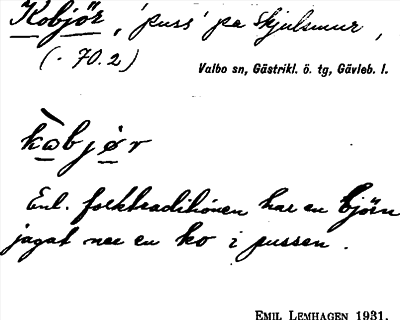 Kobjör, 'puss' på skjulsmur,
(. 70.2)
Valbo sn, Gästrikl. ö. tg, Gävleb. l.
kobjør
Enl. folktraditionen har en björn
jagat ner en ko i pussen.
EMIL LEMHAGEN 1931.